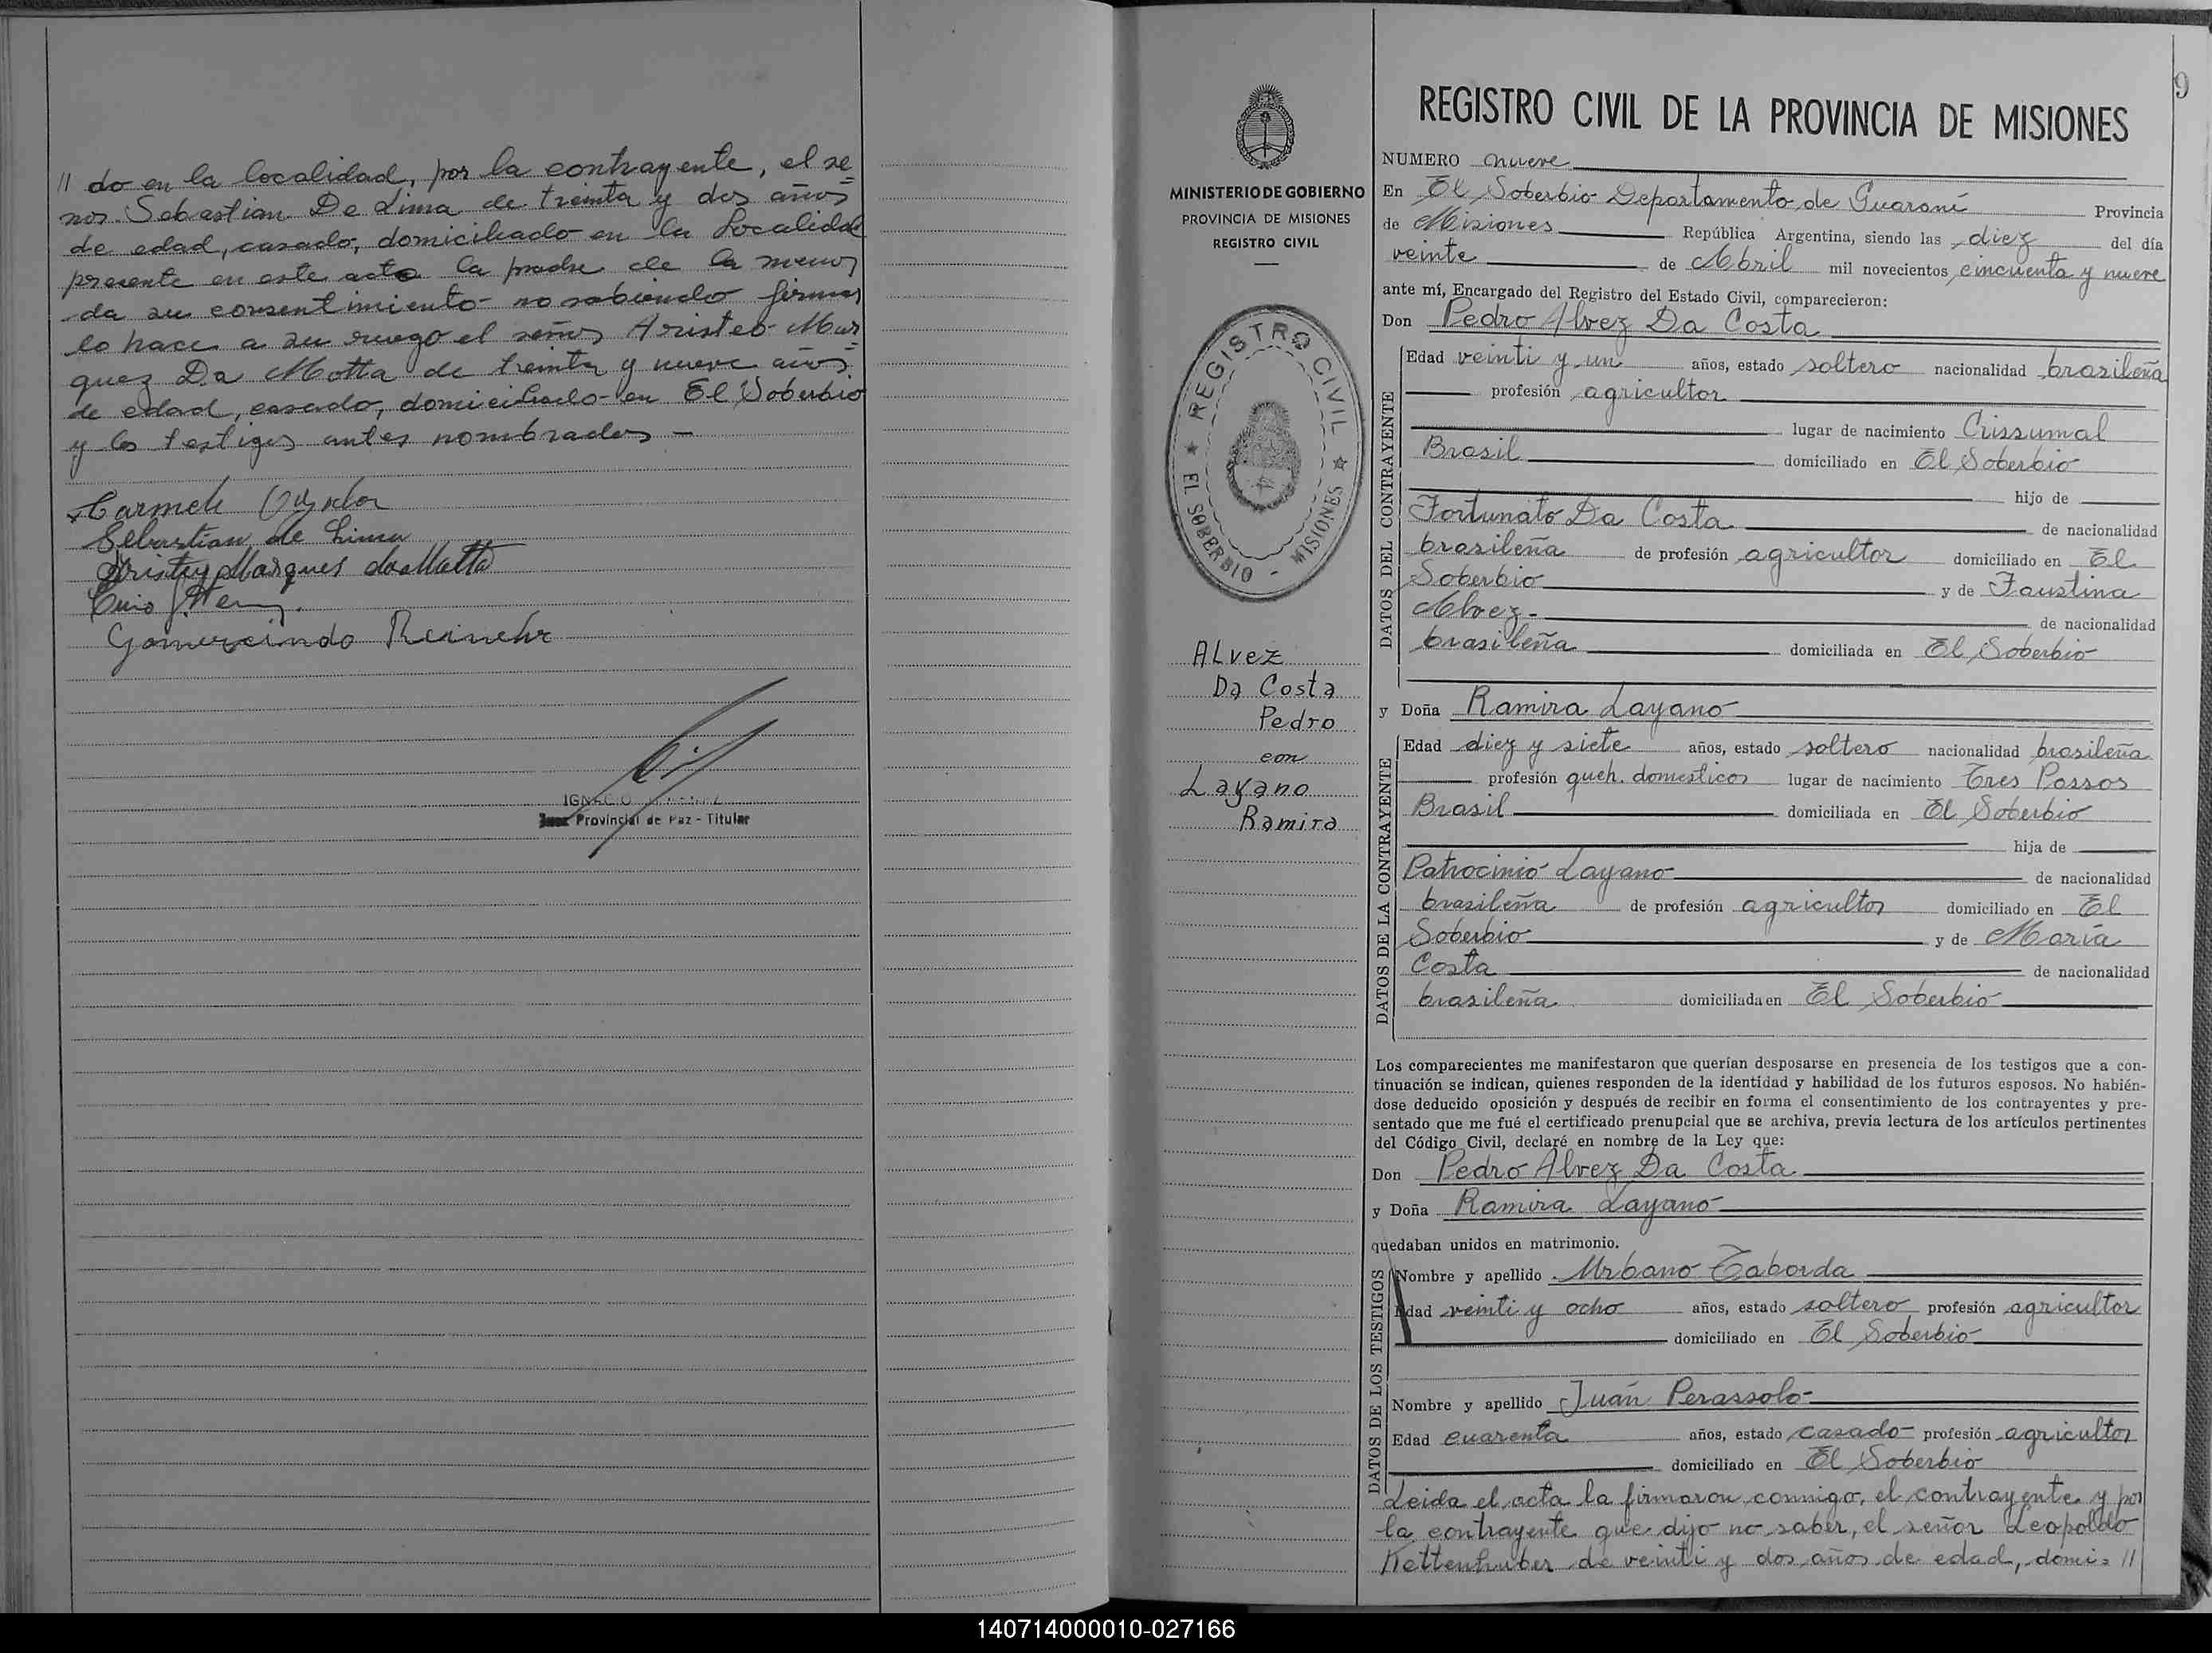 // do en la localidad, por la contrayente, el se=
nor Sebastian De Lima de treinta y dos años
de edad, casado, domiciliado en la Localidad
presente en este acto la madre de la menor
da su consentimiento no sabiendo firmar
lo hace a su ruego el señor Aristeo Mar=
quez Da Motta de treinta y nueve años
de edad, casado, domiciliado en El Soberbio
y los testigos antes nombrados -
Sebastian de Lima
Marques da Motta
Gomercindo
IGNACIO
Juez Provincial de Paz - Titular
9
MINISTERIO DE GOBIERNO
PROVINCIA DE MISIONES
REGISTRO CIVIL
REGISTRO CIVIL
EL SOBERBIO - MISIONES
ALvez
Da Costa
Pedro
con
Layano
Ramira
REGISTRO CIVIL DE LA PROVINCIA DE MISIONES
NUMERO nueve
En El Soberbio Departamento de Guaraní Provincia
de Misiones República Argentina, siendo las diez del día
veinte de Abril mil novecientos cincuenta y nueve
ante mí, Encargado del Registro del Estado Civil, comparecieron:
Don Pedro Alvez Da Costa
DATOS DEL CONTRAYENTE
Edad veinti y un años, estado soltero nacionalidad brasileña
profesión agricultor
lugar de nacimiento Crissumal
Brasil domiciliado en El Soberbio
hijo de
Fortunato Da Costa de nacionalidad
brasileña de profesión agricultor domiciliado en El
Soberbio y de Faustina
Alvez - de nacionalidad
brasileña domiciliada en El Soberbio
y Doña Ramira Layano
DATOS DE LA CONTRAYENTE
Edad diez y siete años, estado soltero nacionalidad brasileña
profesión queh. domesticos lugar de nacimiento Tres Passos
Brasil domiciliada en El Soberbio
hija de
Patrocinio Layano de nacionalidad
brasileña de profesión agricultor domiciliado en El
Soberbio y de María
Costa de nacionalidad
brasileña domiciliada en El Soberbio
Los comparecientes me manifestaron que querían desposarse en presencia de los testigos que a con-
tinuación se indican, quienes responden de la identidad y habilidad de los futuros esposos. No habién-
dose deducido oposición y después de recibir en forma el consentimiento de los contrayentes y pre-
sentado que me fué el certificado prenupcial que se archiva, previa lectura de los artículos pertinentes
del Código Civil, declaré en nombre de la Ley que:
Don Pedro Alvez Da Costa
y Doña Ramira Layano
quedaban unidos en matrimonio.
DATOS DE LOS TESTIGOS
Nombre y apellido Urbano Taborda
Edad veinti y ocho años, estado soltero profesión agricultor
domiciliado en El Soberbio
Nombre y apellido Juán Perassolo
Edad cuarenta años, estado casado profesión agricultor
domiciliado en El Soberbio
Leida el acta la firmaron conmigo, el contrayente y por
la contrayente que dijo no saber, el señor Leopoldo
Kettenhuber de veinti y dos años de edad, domi= //
140714000010-027166